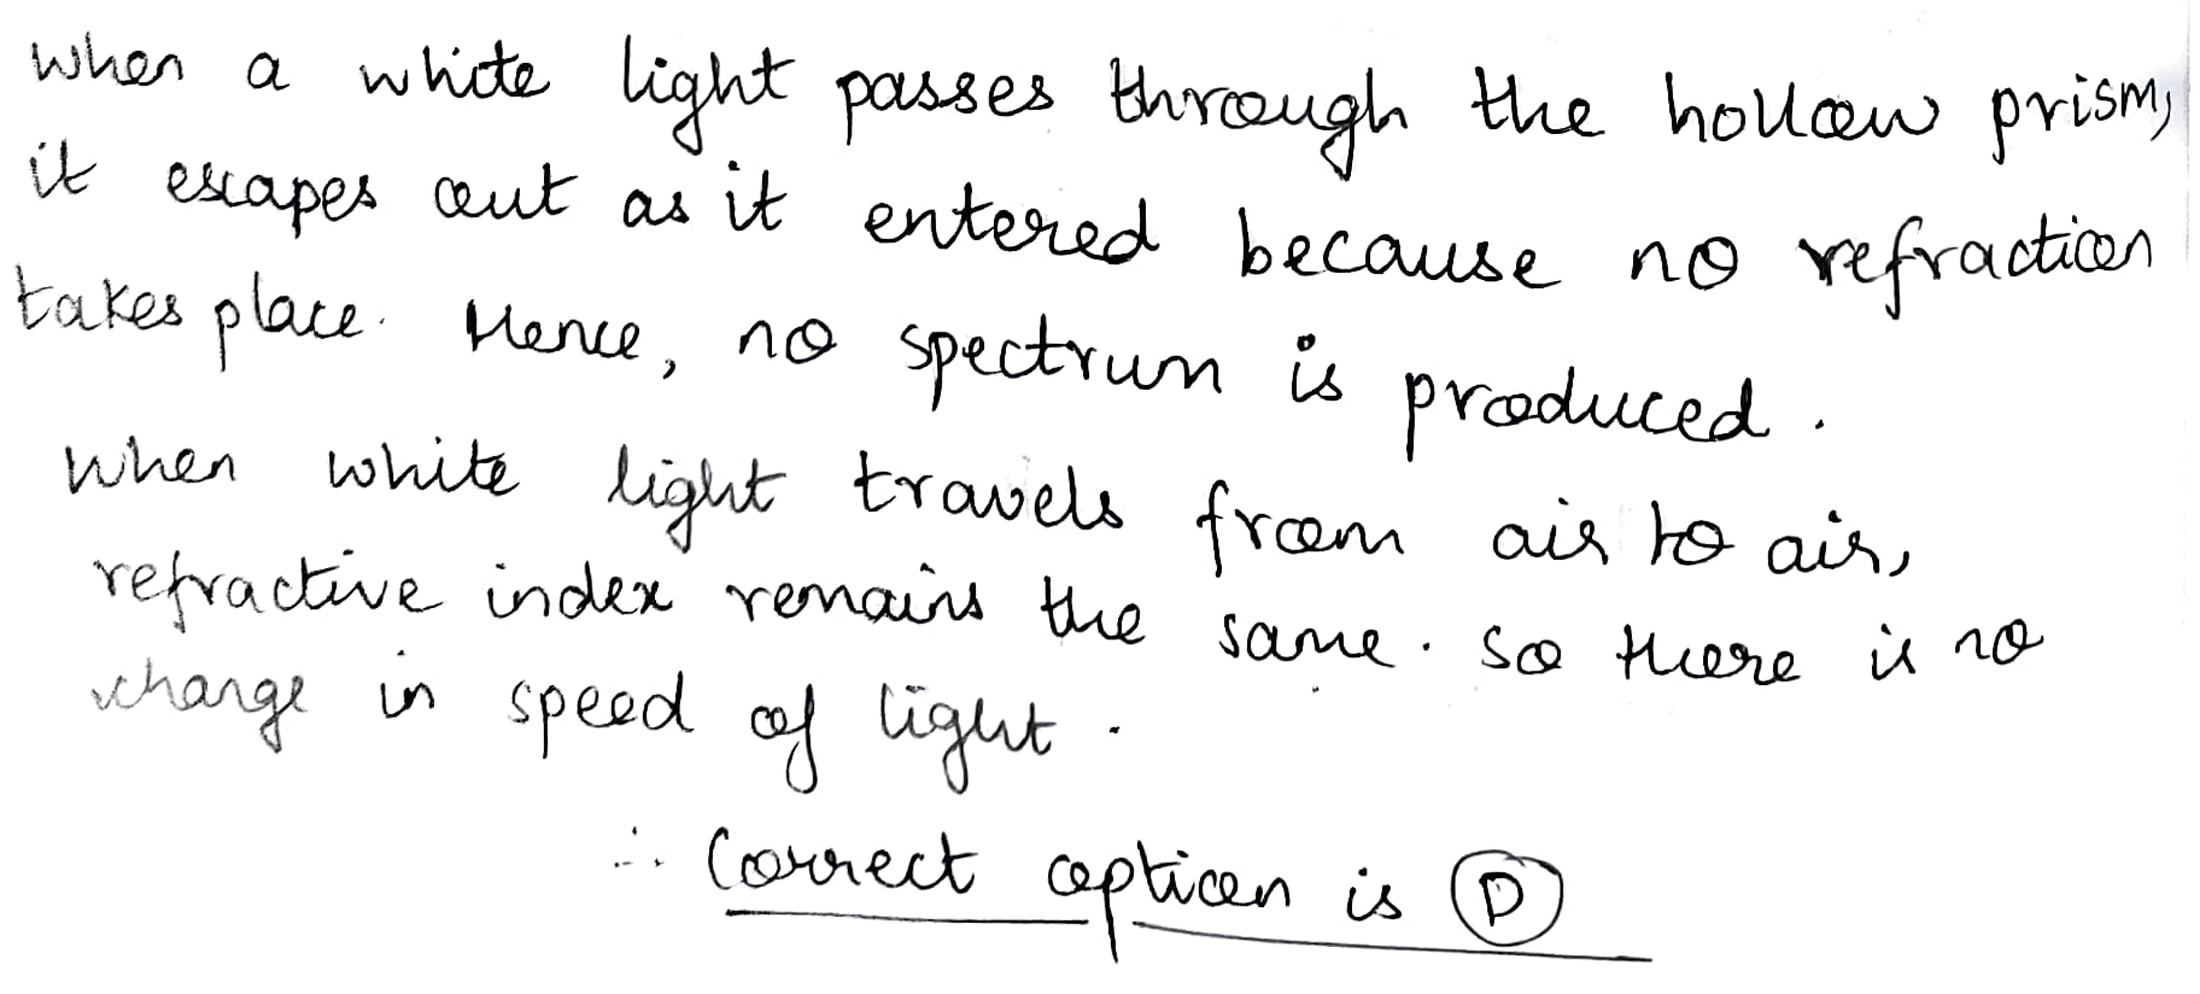 When a white light passes through the hollow prism,
it escapes out as it entered because no refraction
takes place. Hence, no spectrum is produced.
When white light travels from air to air,
refractive index remains the same. So there is no
change in speed of light.
∴ Correct option is D